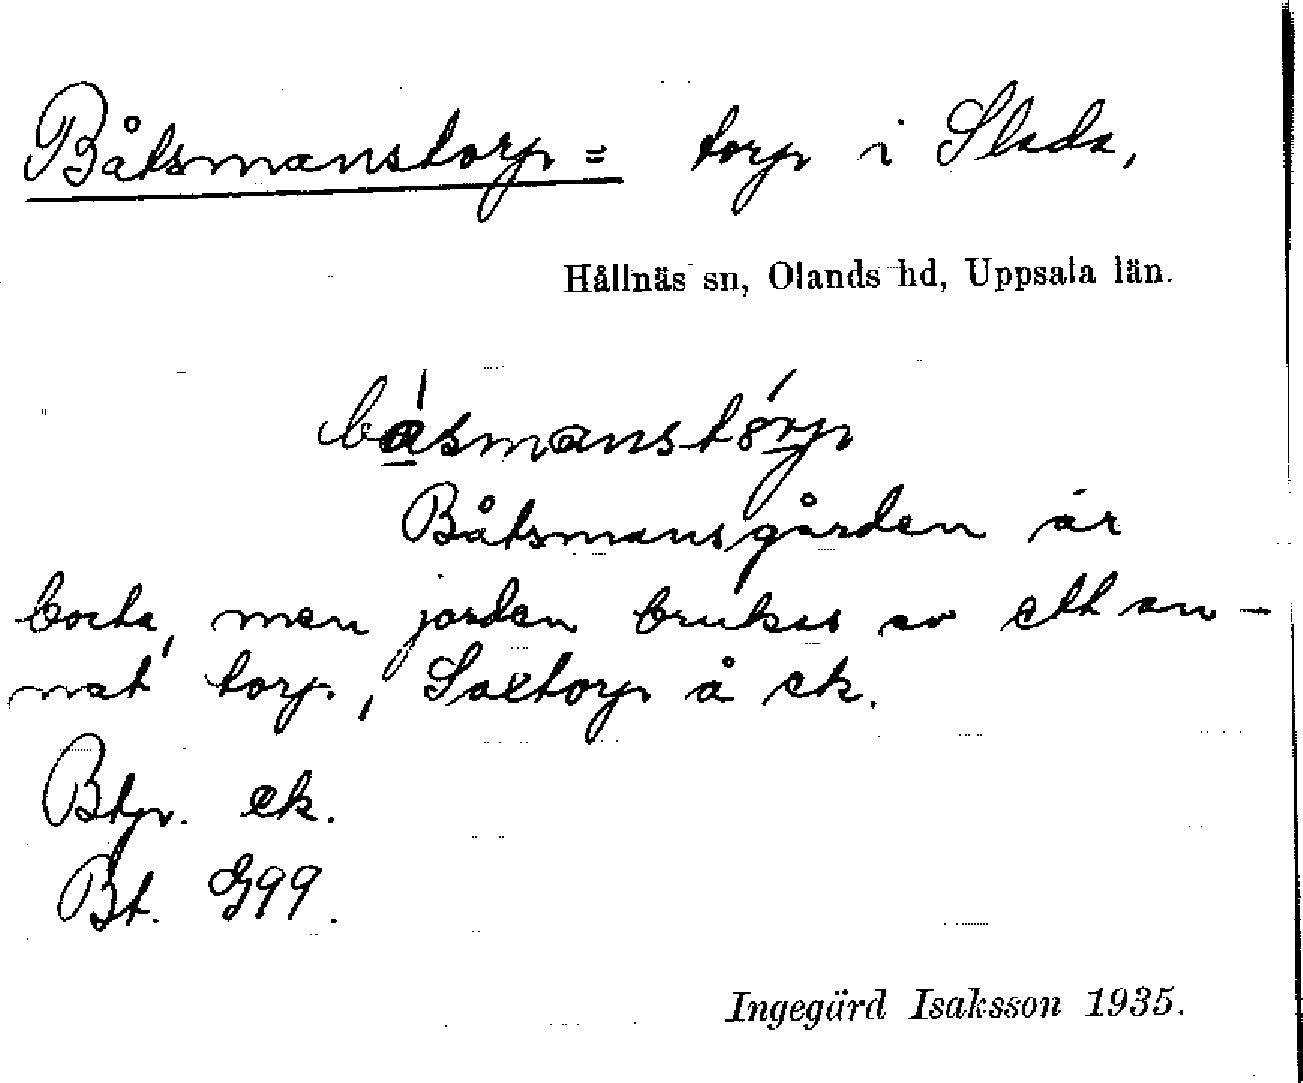 Båtsmanstorp = torp i Slada,
Hållnäs sn, Olands hd, Uppsala län.
båsmanstórp
Båtsmansgården är
borta, men jorden brukas av ett an-
nat torp, Saltorp å ek.
Btp. ek.
Bt. G99.
Ingegärd Isaksson 1935.